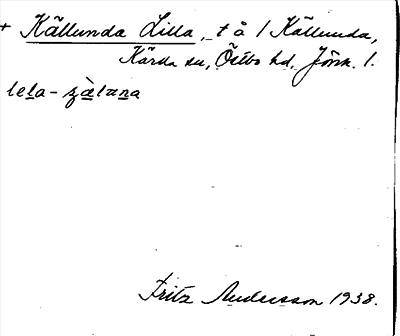 + Källunda Lilla, t å 1 Källunda,
Kärda sn, Östbo hd, Jönk. l.
lela - zàlana
Fritz Andersson 1938.